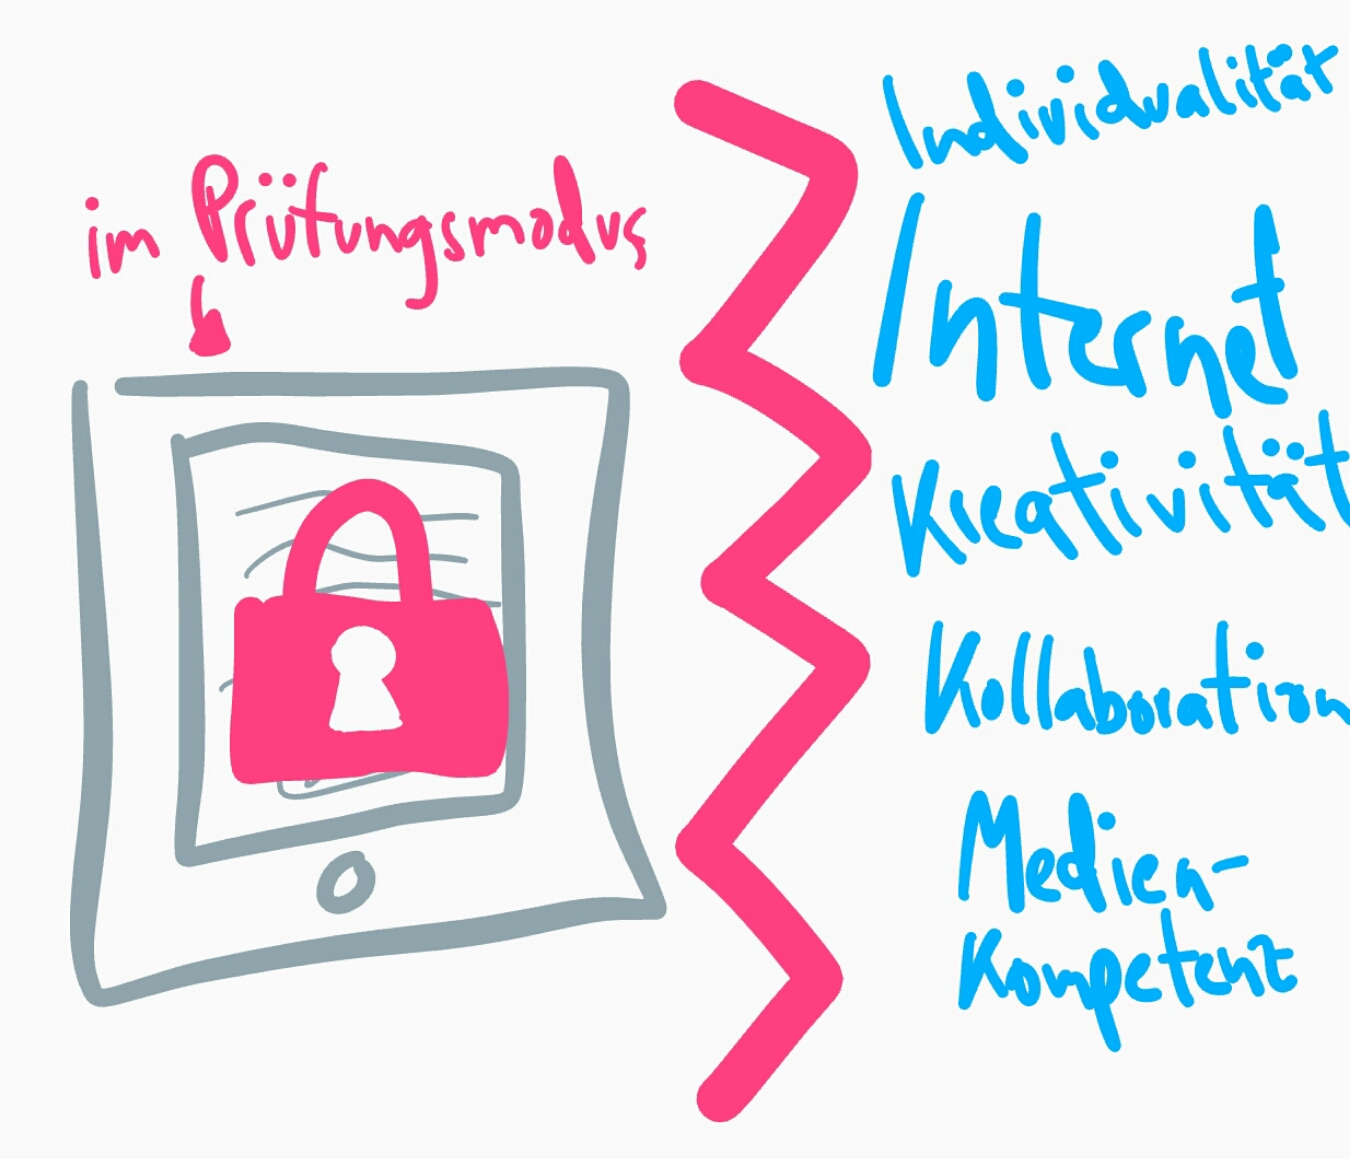 im Prüfungsmodus
Individualität
Internet
Kreativität
Kollaboration
Medien-
Kompetenz